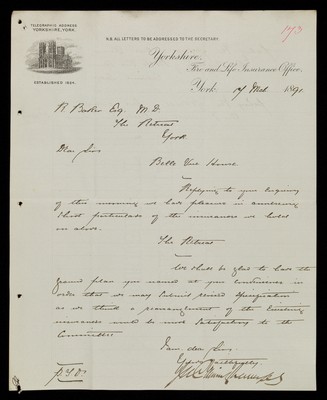 TELEGRAPHIC ADDRESS
YORKSHIRE, YORK.
N.B. ALL LETTERS TO BE ADDRESSED TO THE SECRETARY
173
Yorkshire,
Fire and Life Insurance Office,
ESTABLISHED 1824.
York. 17 Mch 1891
R Baker Esq. M.D.
The Retreat
York
Dear Sir
Belle Vue House
Replying to your enquiry
of this morning we have pleasure in enclosing
short particulars of the insurances we hold
on above.
The Retreat
We shall be glad to have the
ground plan you named at your convenience in
order that we may submit revised specification
as we think a rearrangement of the existing
insurances would be more satisfactory to the
Committee
I am dear Sir
Yours faithfully
P.T.O.